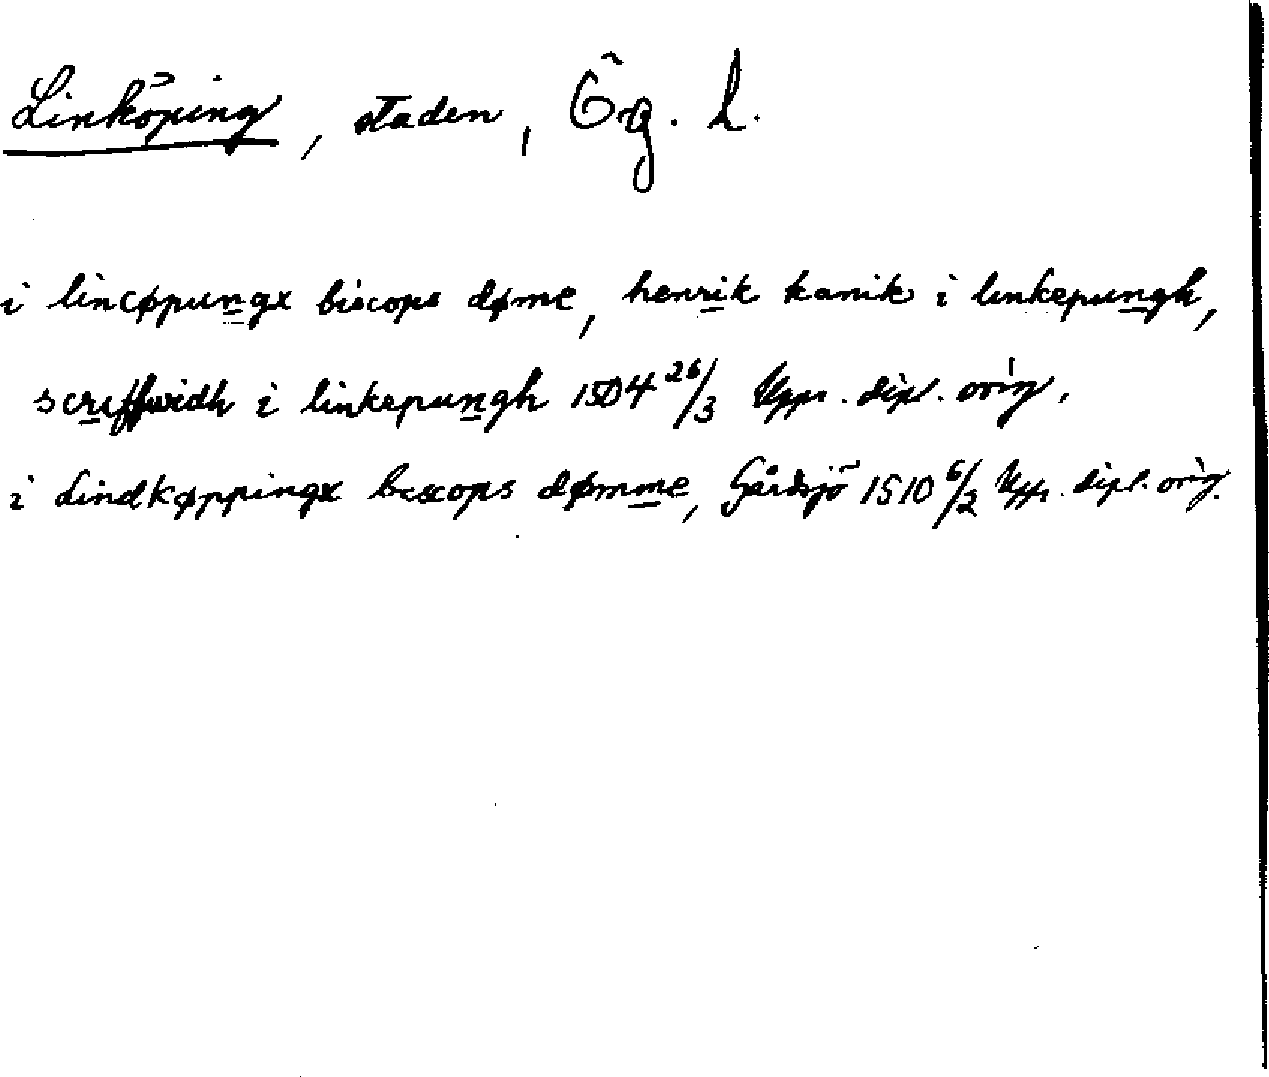 Linköping, staden, Ög. L.
i lincøpungx biscops døme, henrik kanik i linkepungh,
screffwidh i linkepungh 1504 26/3 Upps. dipl. orig.
i Lindkøppingx bescops dømme, Gårdsjö 1510 6/2 Upps. dipl. orig.